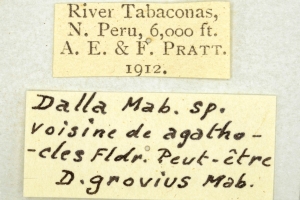 River Tabaconas,
N. Peru, 6,000 ft.
A. E. & F. PRATT.
1912.
Dalla Mab. sp.
voisine de agatho-
-cles Fldr. Peut-être
D. grovius Mab.